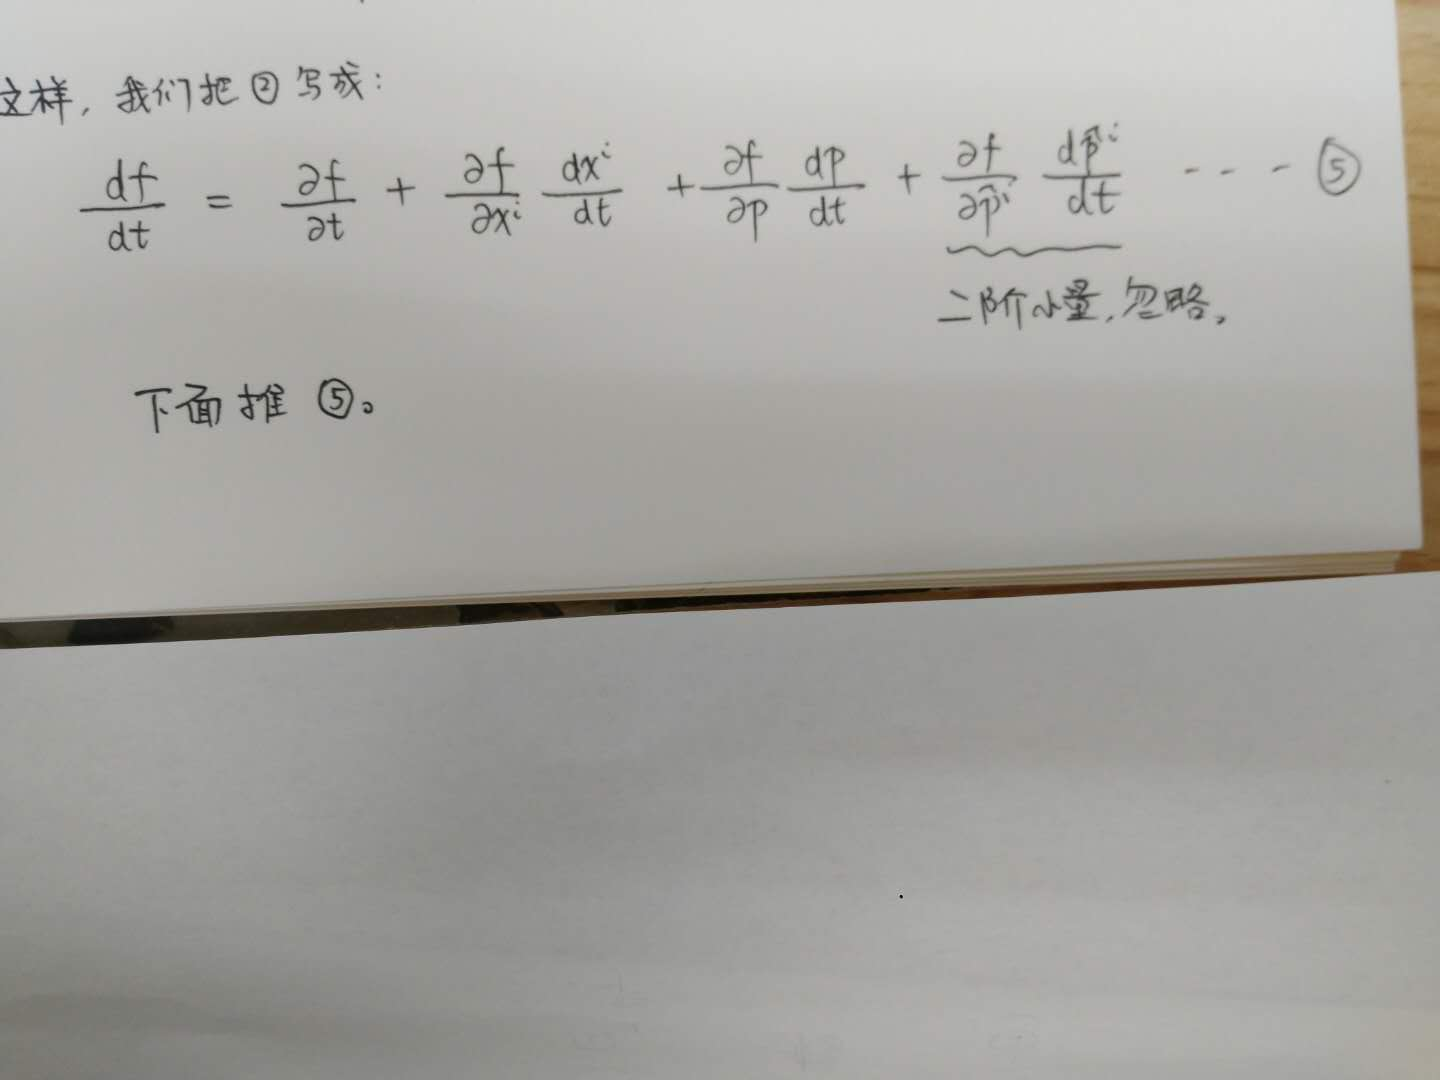 这样, 我们把 ② 写成:
df/dt = ∂f/∂t + ∂f/∂xⁱ dxⁱ/dt + ∂f/∂p dp/dt + ∂f/∂p̂ⁱ dp̂ⁱ/dt --- ⑤
二阶小量, 忽略。
下面推 ⑤。